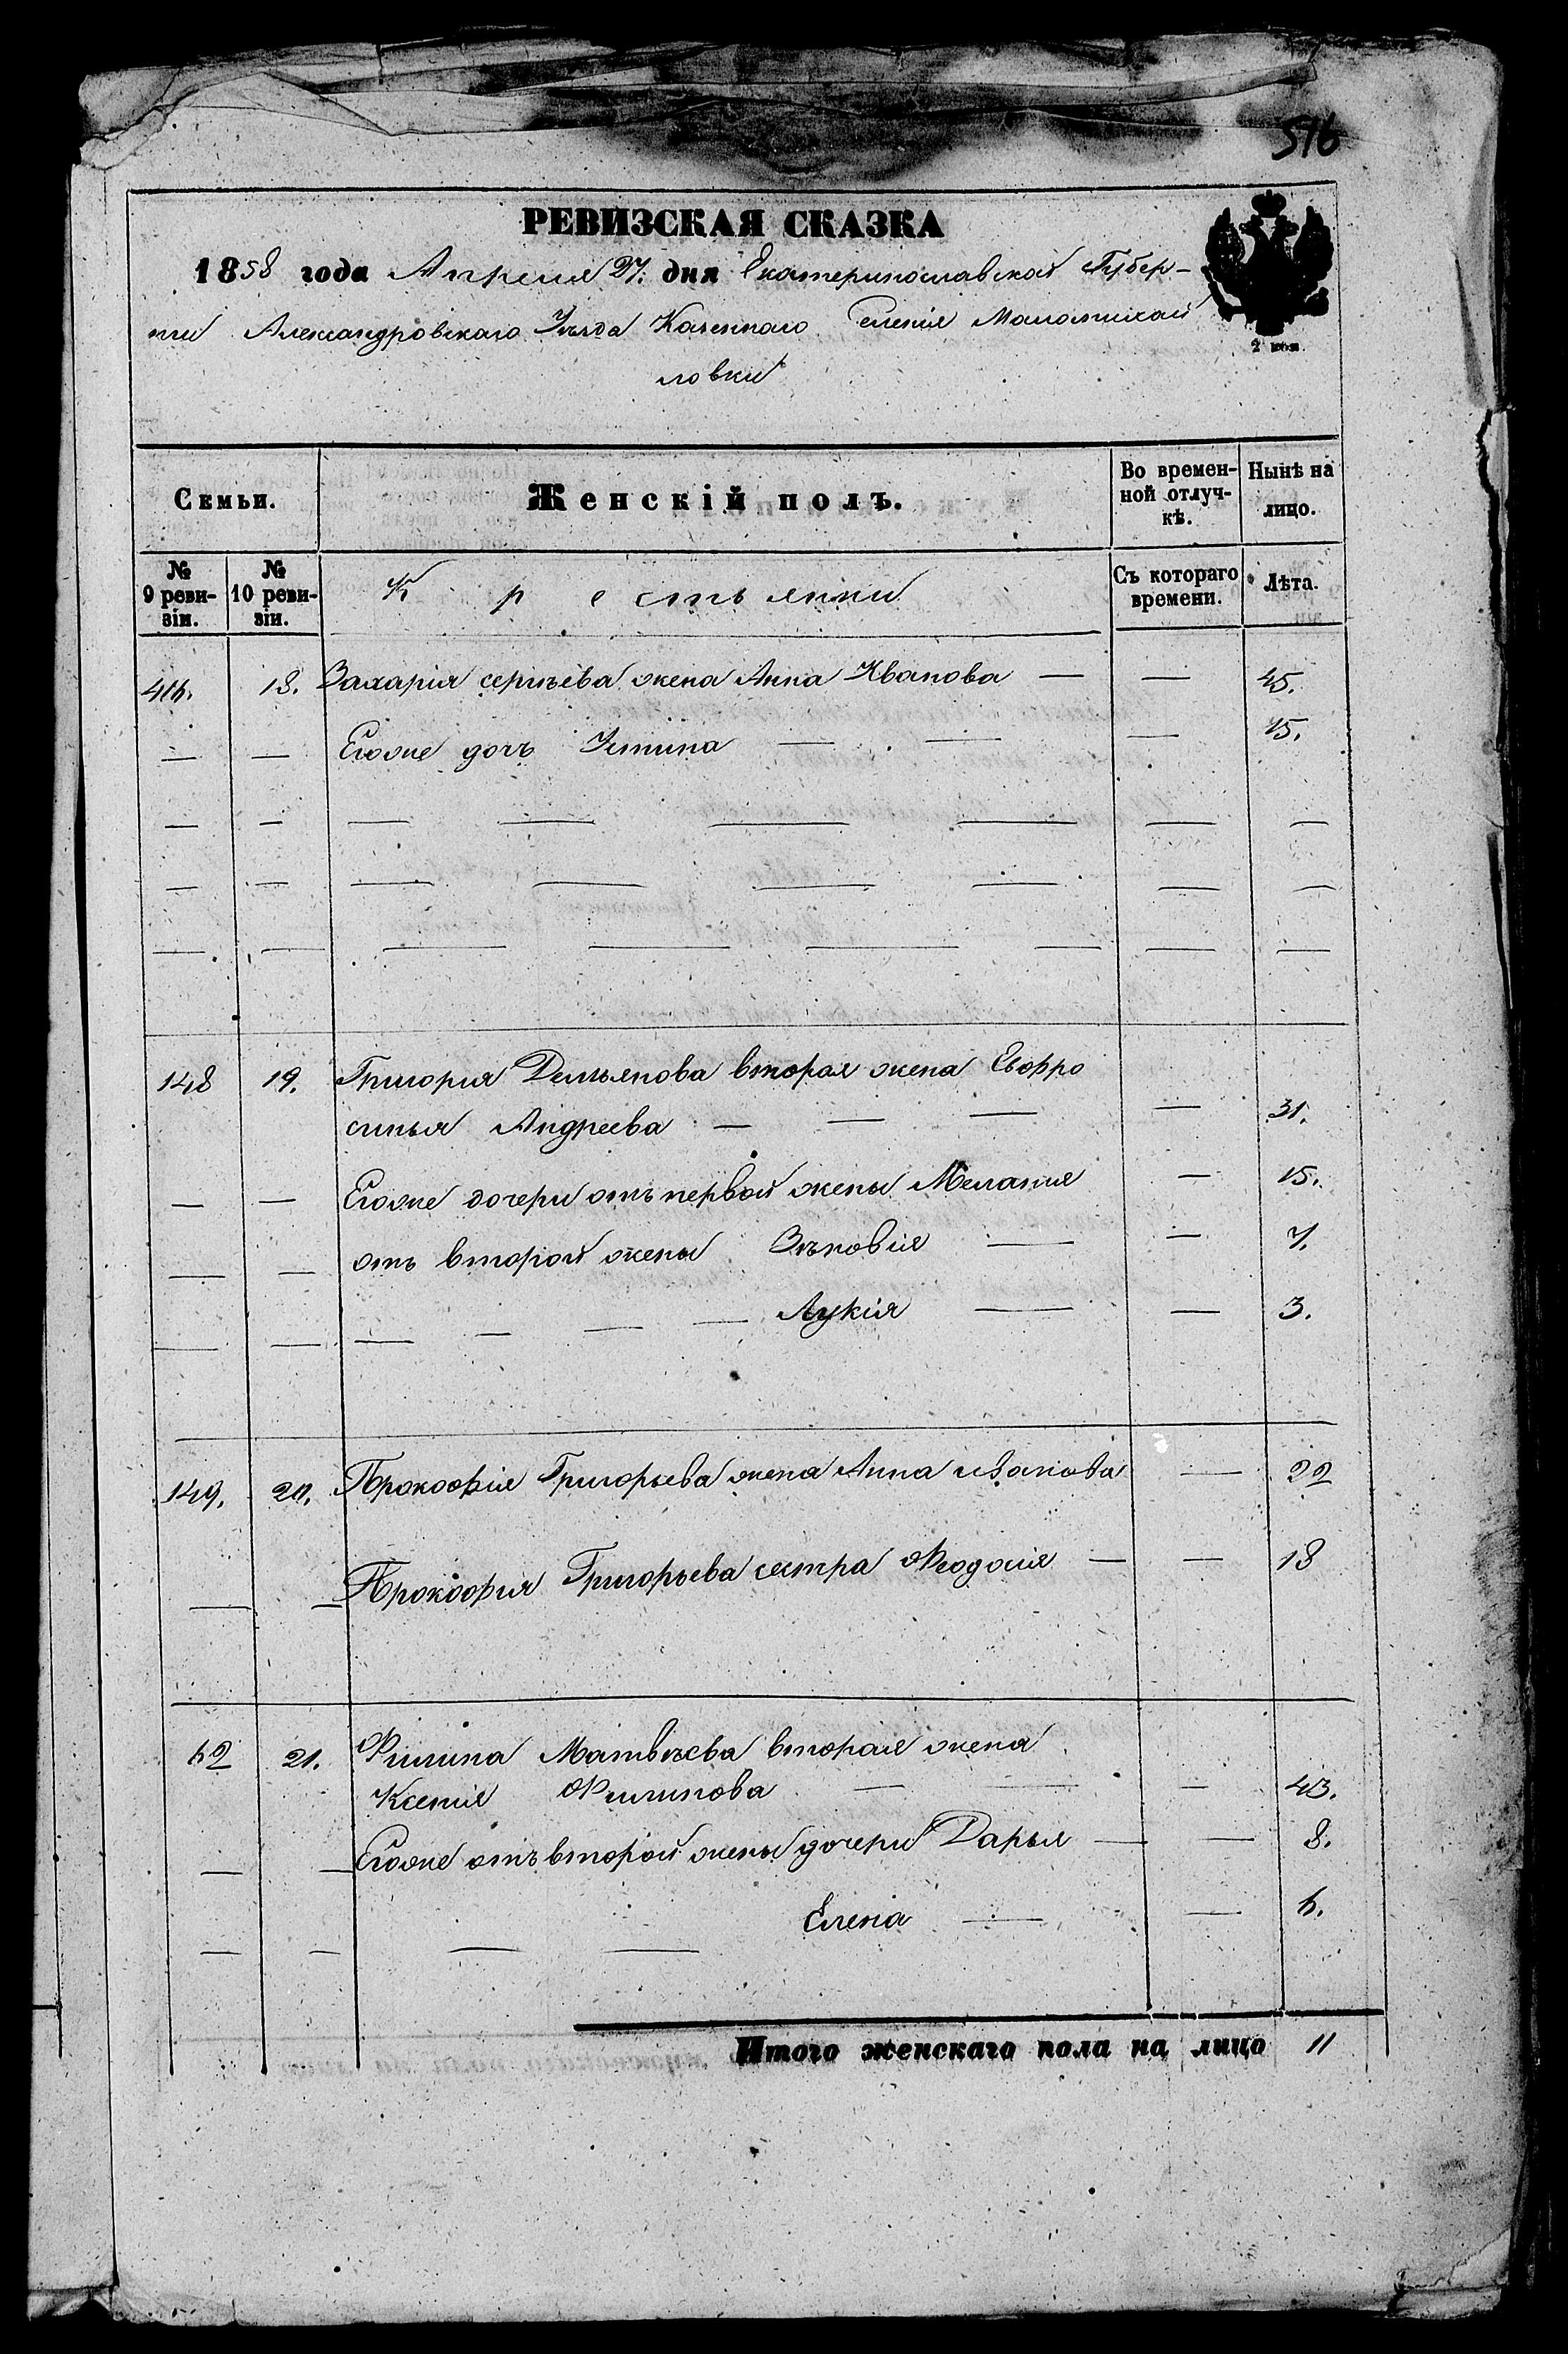 516
РЕВИЗСКАЯ СКАЗКА
1858 года Апреля 27. дня Екатеринославской Губер-
нии Александровскаго Уѣзда Казеннаго Селенія Маломихай
ловки
2 коп.
Семьи. Женскій полъ. Во времен-ной отлуч-кѣ. Нынѣ на лицо.
№ 9 реви-зіи. № 10 реви-зіи. Крестьянки Съ котораго времени. Лѣта.
416. 18. Захарія сергѣева жена Анна Иванова — — 45.
— — Егоже дочь Устина — — — 15.
— — — — — — — —
— — — — — — — —
— — — — — — — —
148 19. Григорія Демьянова вторая жена Евфро
синья Андреева — — — — 31.
— — Егоже дочери отъ первой жены Меланія — 15.
— — отъ второй жены Зѣновія — — 7.
— — — — — — Лукія — — 3.
149. 20. Прокофія Григорьева жена Анна иванова — 22
— — Прокофія Григорьева сестра Феодосія — — 18
62 21. Филипа Матвѣева вторая жена
Ксенія Филипова — — — 43.
— — Егоже отъ второй жены дочери Дарья — — 8.
— — — — Елена — — 6.
Итого женскаго пола на лицо 11